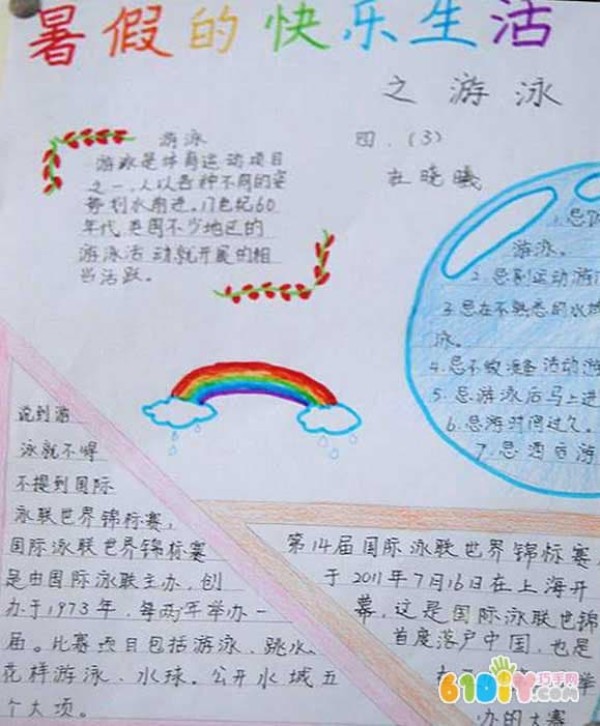 暑假的快乐生活
之游泳
四.(3)
杜晓曦
游泳
游泳是体育运动项目
之一,人以各种不同的姿
势利水前进。17世纪60
年代,英国不少地区的
游泳活动就开展的相
当活跃。
1.忌饭
游泳。
2.忌剧运动游
3.忌在不熟悉的水域
泳。
4.忌不做准备活动游
5.忌游泳后马上进
6.忌游时间过久。
7.忌酒后游
说到游
泳就不得
不提到国际
泳联世界锦标赛,
国际泳联世界锦标赛
是由国际泳联主办,创
办于1973年,每两年举办一
届。比赛项目包括游泳、跳水、
花样游泳、水球。公开水域五
个大项。
第14届国际泳联世界锦标赛
于2011年7月16日在上海开
幕,这是国际泳联世锦
首度落户中国,也是
举
办的大赛
61DIY巧手网